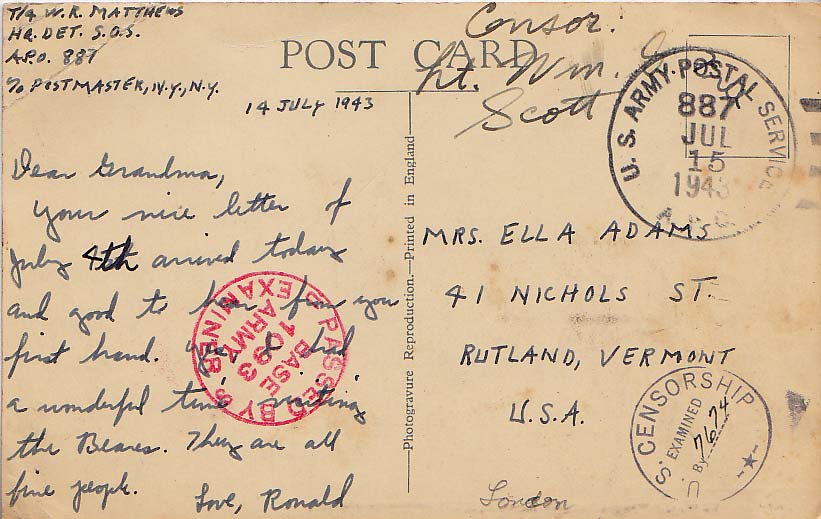 T/4 W.R. MATTHEWS
HQ. DET. S.O.S.
A.P.O. 887
c/o POSTMASTER, N.Y., N.Y.
POST CARD
Censor:
Lt. Wm. 
Scott
U.S. ARMY POSTAL SERVICE
887
JUL
15
1943
A.P.O.
14 JULY 1943
Dear Grandma,
Your nice letter of
July 4th arrived today
and good to hear from you
first hand. Yes, I had
a wonderful time visiting
the Beares. They are all
fine people.
Love, Ronald
PASSED BY
BASE
1093
ARMY
EXAMINER
Photogravure Reproduction.—Printed in England
MRS. ELLA ADAMS
41 NICHOLS ST.
RUTLAND, VERMONT
U.S.A.
U.S. CENSORSHIP
EXAMINED
By 7674
London